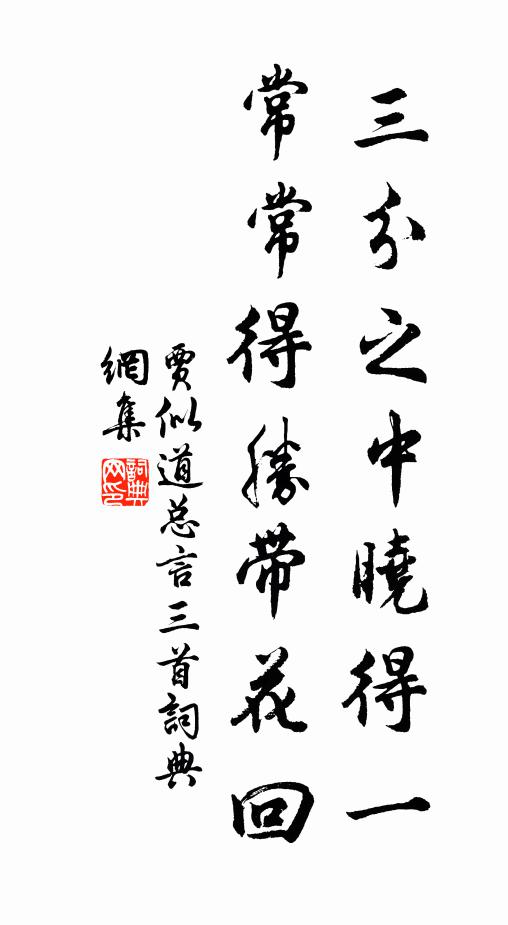 三分之中曉得一
常常得勝帶花回
賈似道总言三首詞典
網集
詞典
网印